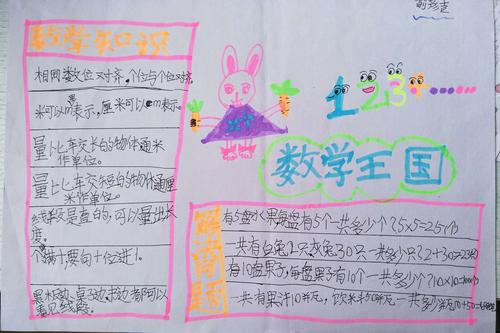 数学知识
相同数位对齐,个位与个位对齐
米可以m表示,厘米可以cm表示.
量比比车交长的物体通米
作单位。
量比比车交短的物体通厘
米作单位。
线段是直的,可以量出长
度。
个满十要向十位进1.
黑板边、桌子边、书边都可以
看见线段。
数学
123+……
数学王国
解决问题
有5盘水果每盘有5个一共多少个?5×5=25(个)
一共有白兔2只,灰兔30只一共多少只?2+30=32(只)
有10盘果子,每盘果子有10个一共多少个?10×10=100(个)
一共有果汁10瓶,饮料50瓶一共多少瓶10+50=60(瓶)